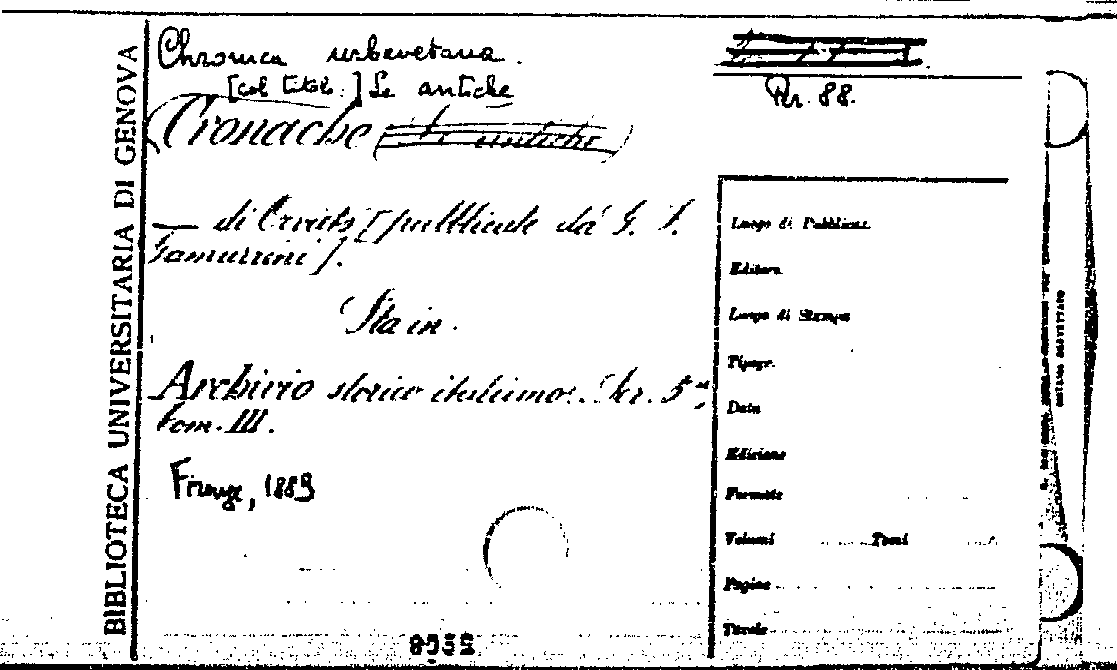 BIBLIOTECA UNIVERSITARIA DI GENOVA
Chronica urbevetana.
[col titolo:] Le antiche
Cronache (le antiche)
— di Orvieto [pubblicate da G. F.
Gamurrini].
Sta in.
Archivio storico italiano. Ser. 5ª,
tom. III.
Firenze, 1889
Per. 88.
Luogo di Pubblicaz.
Editore
Luogo di Stampa
Tipogr.
Data
Edizione
Formato
Volumi Tomi
Pagine
Tavole